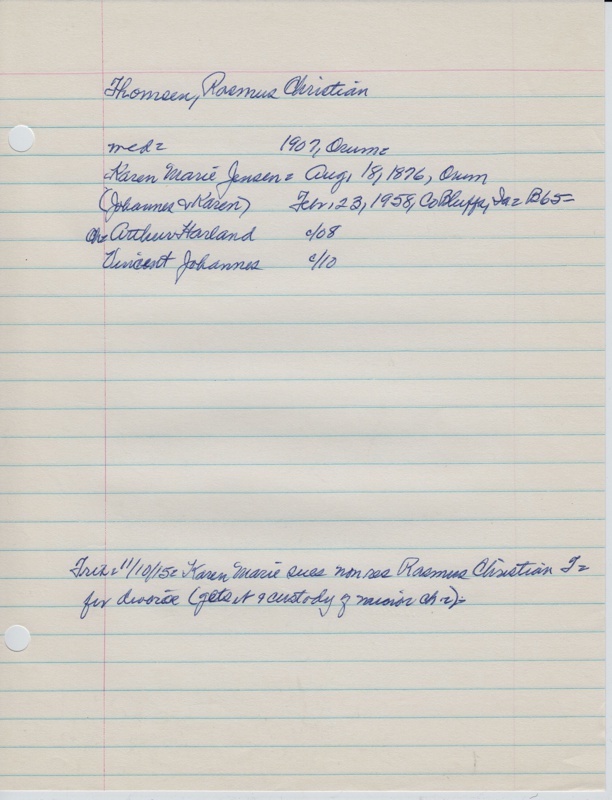 Thomsen, Rasmus Christian
med= 1907, Orum=
Karen Marie Jensen= Aug. 18, 1876, Orum
(Johannes & Karen) Febr. 23, 1958, CoBluffs, Ia= B65=
Ch= Arthur Harland c/08
Vincent Johannes c/10
Trib= 11/10/15= Karen Marie sues nonres Rasmus Christian T=
for divorce (gets it & custody of minor ch=)=